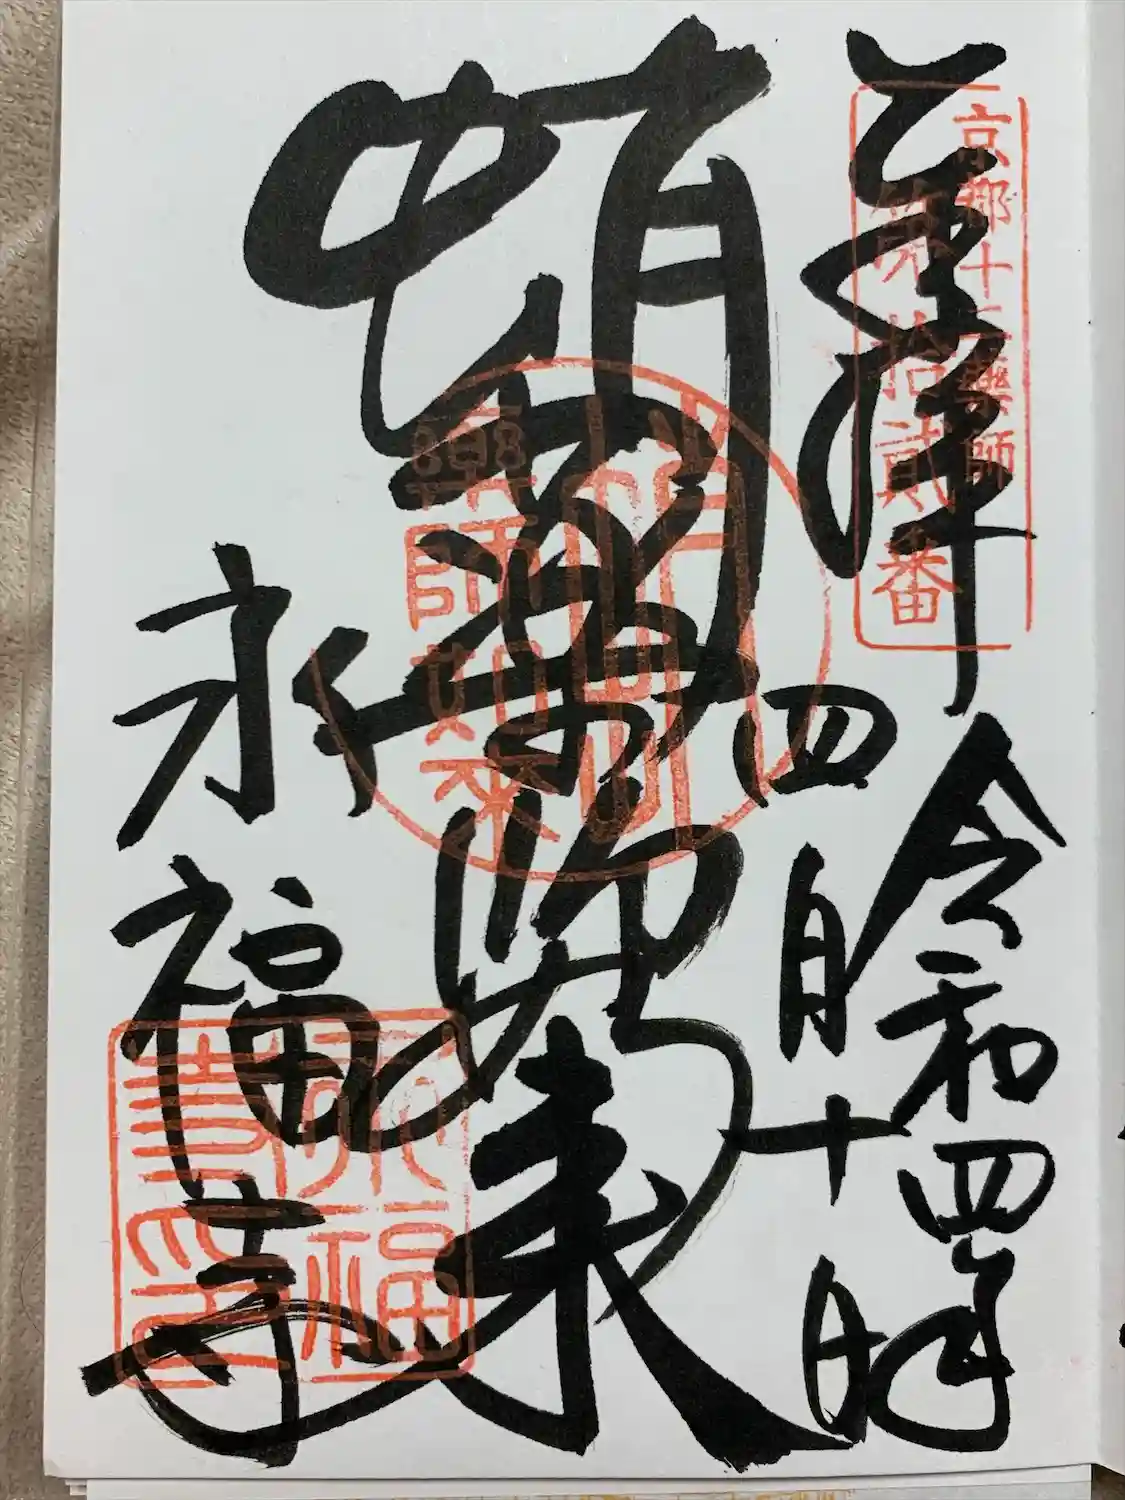 奉拝
京都十二薬師
第拾貳番
令和四年
四月十日
蛸薬師如来
薬師如来
永福寺
永福
寺印